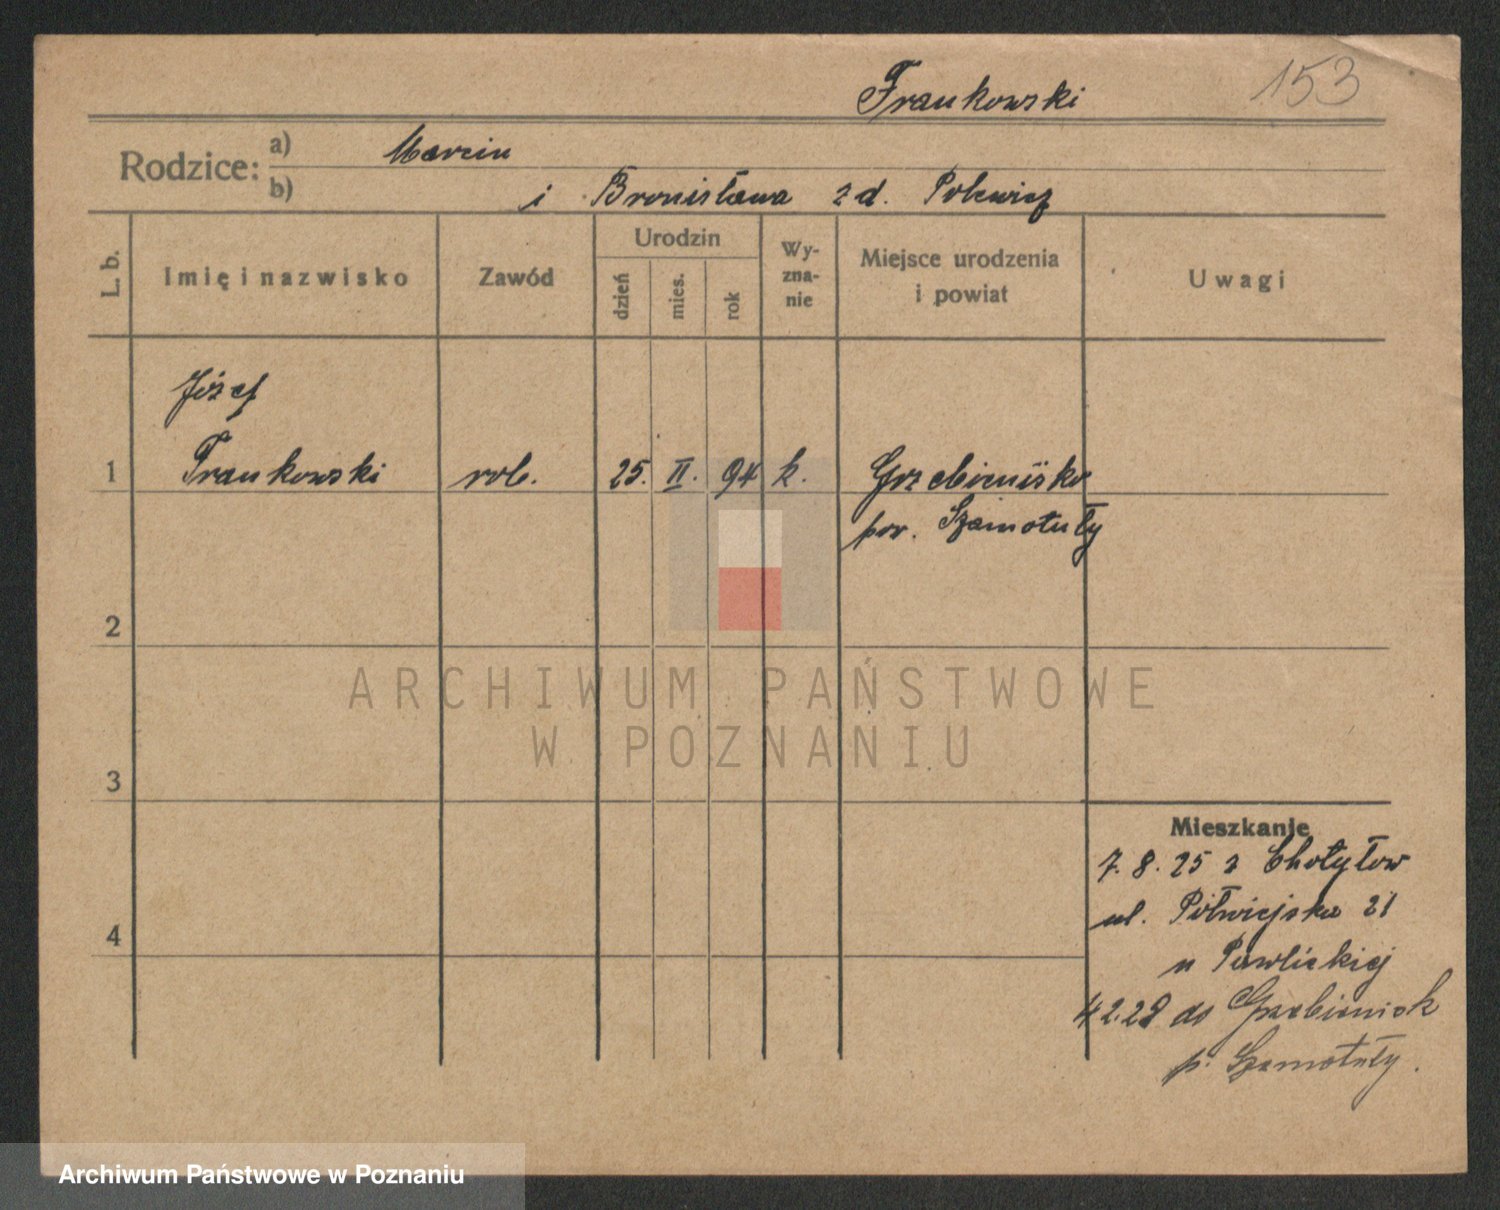 153
Frankowski
Rodzice:
a) Marcin
b) i Bronisława z d. Polewicz
L. b.
Imię i nazwisko
Zawód
Urodzin
dzień
mies.
rok
Wy-
zna-
nie
Miejsce urodzenia
i powiat
Uwagi
Józef
1 Frankowski rob. 25. II. 94 k. Grzebienisko
pow. Szamotuły
2
3
4
Mieszkanie
7. 8. 25 z Chotyłow
ul. Półwiejska 21
u Pawlickiej
4 2.29 do Grzebienisk
p. Szamotuły.
ARCHIWUM PAŃSTWOWE
W POZNANIU
Archiwum Państwowe w Poznaniu